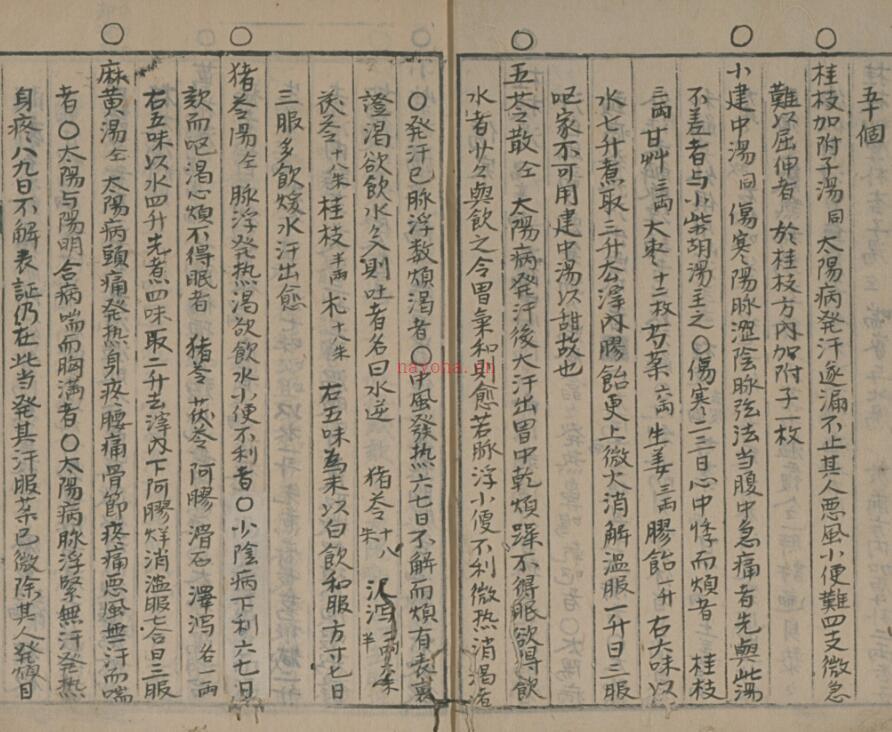 五十個
桂枝加附子湯同 太陽病発汗遂漏不止其人悪風小便難四支微急
難以屈伸者 於桂枝方内加附子一枚
小建中湯同 傷寒陽脉澀陰脉弦法当腹中急痛者先與此湯
不差者与小柴胡湯主之〇傷寒二三日心中悸而煩者 桂枝
三両 甘艸三両 大枣十二枚 芍薬六両 生姜三両 膠飴一升 右六味以
水七升煮取三升去滓内膠飴更上微火消解温服一升日三服
呕家不可用建中湯以甜故也
五苓散仝 太陽病発汗後大汗出胃中乾煩躁不得眠欲得飲
水者少々與飲之令胃氣和則愈若脉浮小便不利微热消渇者
〇発汗已脉浮数煩渇者〇中風發热六七日不解而煩有表裏
證渇欲飲水々入則吐者名曰水逆 猪苓十八朱 沢泻一両六朱半
茯苓十八朱 桂枝半両 朮十八朱 右五味為末以白飲和服方寸匕日
三服多飲煖水汗出愈
猪苓湯仝 脉浮発热渇欲飲水小便不利者〇少陰病下利六七日
欬而呕渇心煩不得眠者 猪苓 茯苓 阿膠 滑石 澤泻各一両
右五味以水四升先煮四味取二升去滓内下阿膠烊消温服七合日三服
麻黄湯仝 太陽病頭痛発热身疼腰痛骨節疼痛悪風無汗而喘
者〇太陽与陽明合病喘而胸満者〇太陽病脉浮緊無汗発热
身疼八九日不解表証仍在此当発其汗服薬已微除其人発煩目
nayona.cn